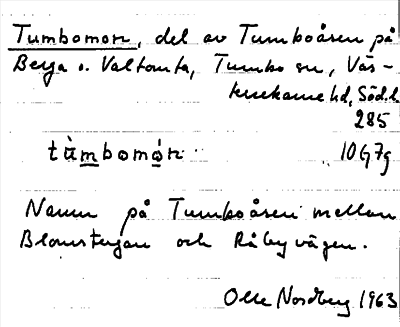 Tumbomon, del av Tumboåsen på
Berga o. Valtomta, Tumbo sn, Väs-
terrekarne hd, Söd.l.
285
tùmbomón 10G7g
Namn på Tumboåsen mellan
Blomstugan och Råbyvägen.
Olle Nordberg 1963